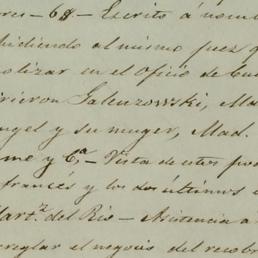 ores - 68. - Escrito á nomb
pidiendo al mismo juez q
olizar en el Oficio de
rieron Galuzowski, Mad
ngel y su muger, Mad.
me y C.ª - Vista de estos pod
francés y los dos últimos e
Mart.z del Rio - Asistencia á
rreglar el negocio del recobr